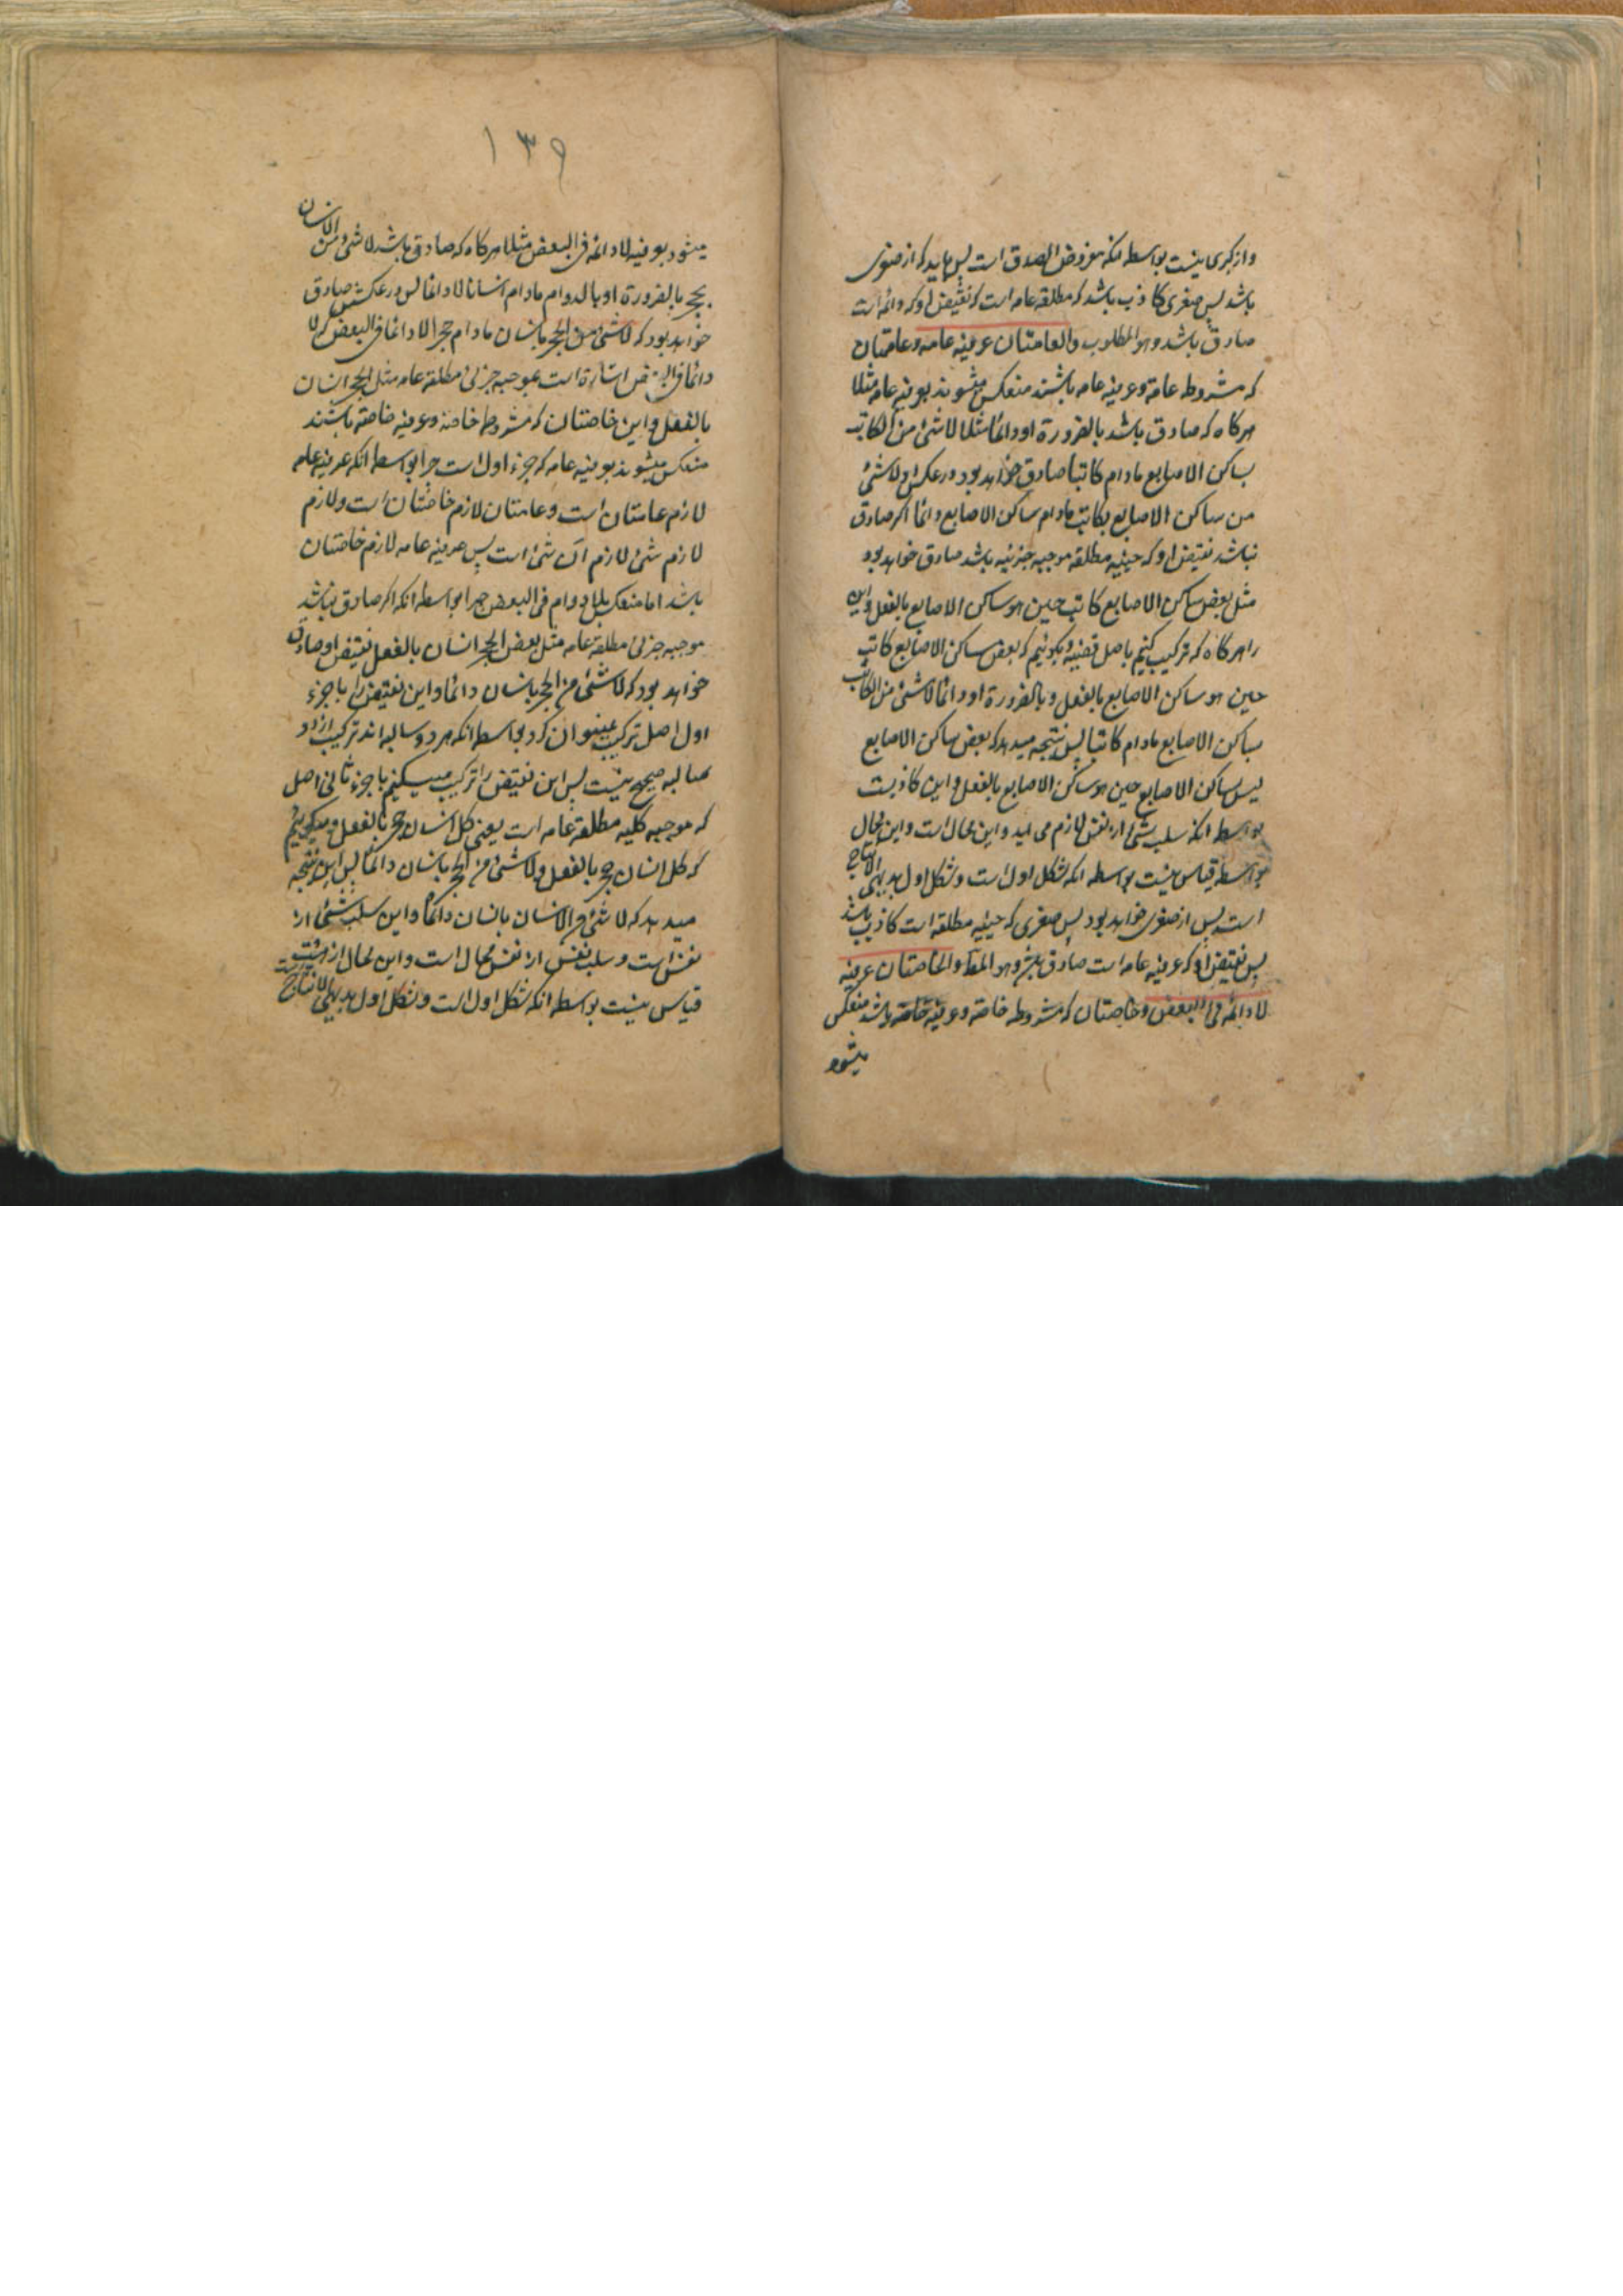 واز کبری نیست بواسطه انکه مفروض الصدق است پس باید که از صغری
باشد پس صغری کاذب باشد که مطلقه عامه است که نقیض او که دائمه است
صادق باشد وهو المطلوب والعامتان عرفیه عامه وعامتان
که مشروطه عامه وعرفیه عامه باشند منعکس میشوند بعرفیه عامه مثلا
هرکاه که صادق باشد بالضرورة او دائما مثلا لا شئ من الکاتب
بساکن الاصابع مادام کاتبا صادق خواهد بود در عکس او لا شئ
من ساکن الاصابع بکاتب مادام ساکن الاصابع دائما اکر صادق
نباشد نقیض او که حینیه مطلقه موجبه جزئیه باشد صادق خواهد بود
مثل بعض ساکن الاصابع کاتب حین هو ساکن الاصابع بالفعل واین
را هرکاه که ترکیب کنیم باصل قضیه وبکوئیم که بعض ساکن الاصابع کاتب
حین هو ساکن الاصابع بالفعل وبالضرورة او دائما لا شئ من الکاتب
بساکن الاصابع مادام کاتبا پس نتیجه میدهد که بعض ساکن الاصابع
لیس بساکن الاصابع حین هو ساکن الاصابع بالفعل واین کاذبست
بواسطه انکه سلب شئ از نفس لازم می اید واین محال است واین محال
بواسطه قیاس نیست بواسطه انکه شکل اول است وشکل اول بدیهی الانتاج
است پس از صغری خواهد بود پس صغری که حینیه مطلقه است کاذب باشد
پس نقیض او که عرفیه عامه است صادق باشد وهو المط والخاصتان عرفیه
لا دائمه فی البعض وخاصتان که مشروطه خاصه وعرفیه خاصه باشد منعکس
میشود
۱۳۹
میشود بعرفیه لا دائمه فی البعض مثلا هرکاه که صادق باشد لا شئ من الانسان
بحجر بالضرورة او بالدوام مادام انسانا لا دائما پس در عکسش صادق
خواهد بود که لا شئ من الحجر بانسان مادام حجرا لا دائما فی البعض که لا
دائما فی البعض اشارة است بموجبه جزئی مطلقه عامه مثل الحجر انسان
بالفعل واین خاصتان که مشروطه خاصه وعرفیه خاصه باشند
منعکس میشوند بعرفیه عامه که جزء اول است چرا بواسطه انکه عرفیه عامه
لازم عامتان است وعامتان لازم خاصتان است ولازم
لازم شئ لازم آن شئ است پس عرفیه عامه لازم خاصتان
باشد اما منعکس بلا دوام فی البعض چرا بواسطه انکه اکر صادق نباشد
موجبه جزئی مطلقه عامه مثل بعض الحجر انسان بالفعل نقیض او صادق
خواهد بود که لا شئ من الحجر بانسان دائما واین نقیض را با جزء
اول اصل ترکیب نمیتوان کرد بواسطه انکه هر دو سالبه اند ترکیب از دو
سالبه صحیح نیست پس این نقیض را ترکیب میکنیم با جزء ثانی اصل
که موجبه کلیه مطلقه عامه است یعنی کل انسان حجر بالفعل ومیکوئیم
که کل انسان حجر بالفعل ولا شئ من الحجر بانسان دائما پس این نتیجه
میدهد که لا شئ من الانسان بانسان دائما واین سلب شئ از
نفس است وسلب نفس از نفس محال است واین محال از هیئت
قیاس نیست بواسطه انکه شکل اول است وشکل اول بدیهی الانتاج است